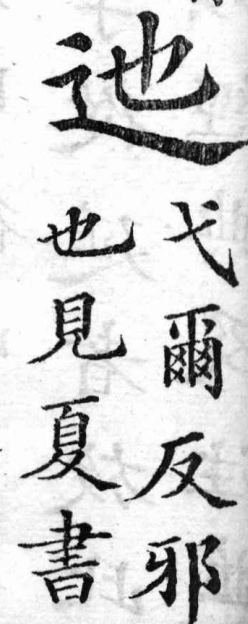 迆
弋爾反邪
也見夏書